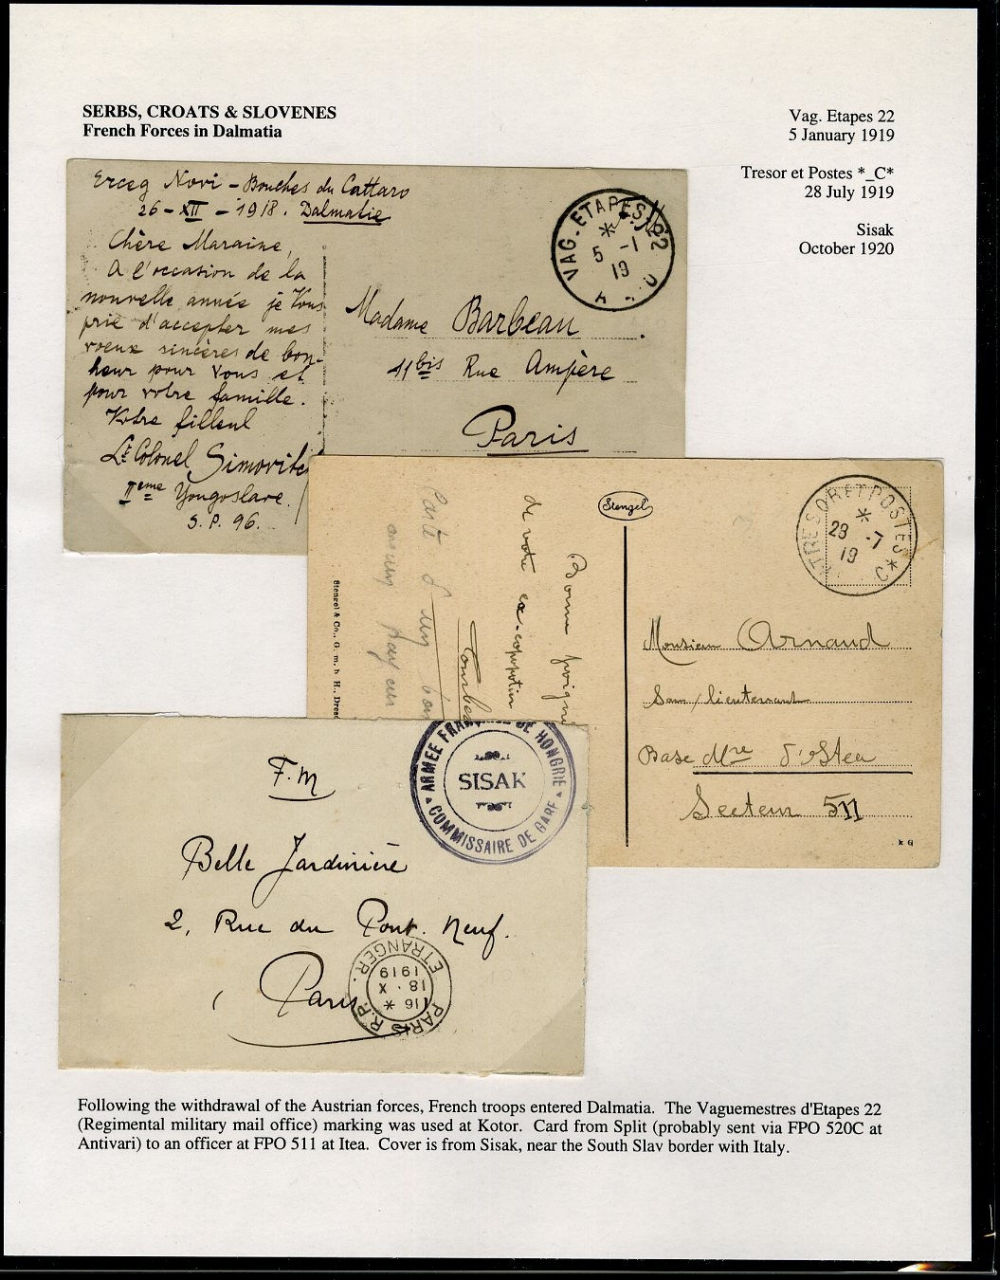 SERBS, CROATS & SLOVENES
French Forces in Dalmatia
Vag. Etapes 22
5 January 1919
Tresor et Postes *_C*
28 July 1919
Sisak
October 1920
Erceg Novi - Bouches du Cattaro
26 - XII - 1918. Dalmatie
Chère Maraine,
A l'occasion de la
nouvelle année je Vous
prie d'accepter mes
voeux sincères de bon-
heur pour vous et
pour votre famille.
Votre filleul
Lt Colonel Simovitch
IIeme Yougoslave.
S. P. 96.
VAG.-ETAPES 22
*
5 -1
19
Madame Barbeau
11bis Rue Ampère
Paris
Stengel
TRESOR ET POSTES *
*
29 -7
19
Bonne poigné
de votre
Carte d'un
Stengel & Co., G. m. b. H., Dres
Monsieur Arnaud
Sous/lieutenant
Base Mre d'Itea
Secteur 511
F.M
ARMEE FRANÇAISE DE HONGRIE
SISAK
COMMISSAIRE DE GARE
Belle Jardinière
2, Rue du Pont. Neuf.
Paris
PARIS R.P.
16 *
18 · X
1919
ETRANGER.
Following the withdrawal of the Austrian forces, French troops entered Dalmatia. The Vaguemestres d'Etapes 22
(Regimental military mail office) marking was used at Kotor. Card from Split (probably sent via FPO 520C at
Antivari) to an officer at FPO 511 at Itea. Cover is from Sisak, near the South Slav border with Italy.